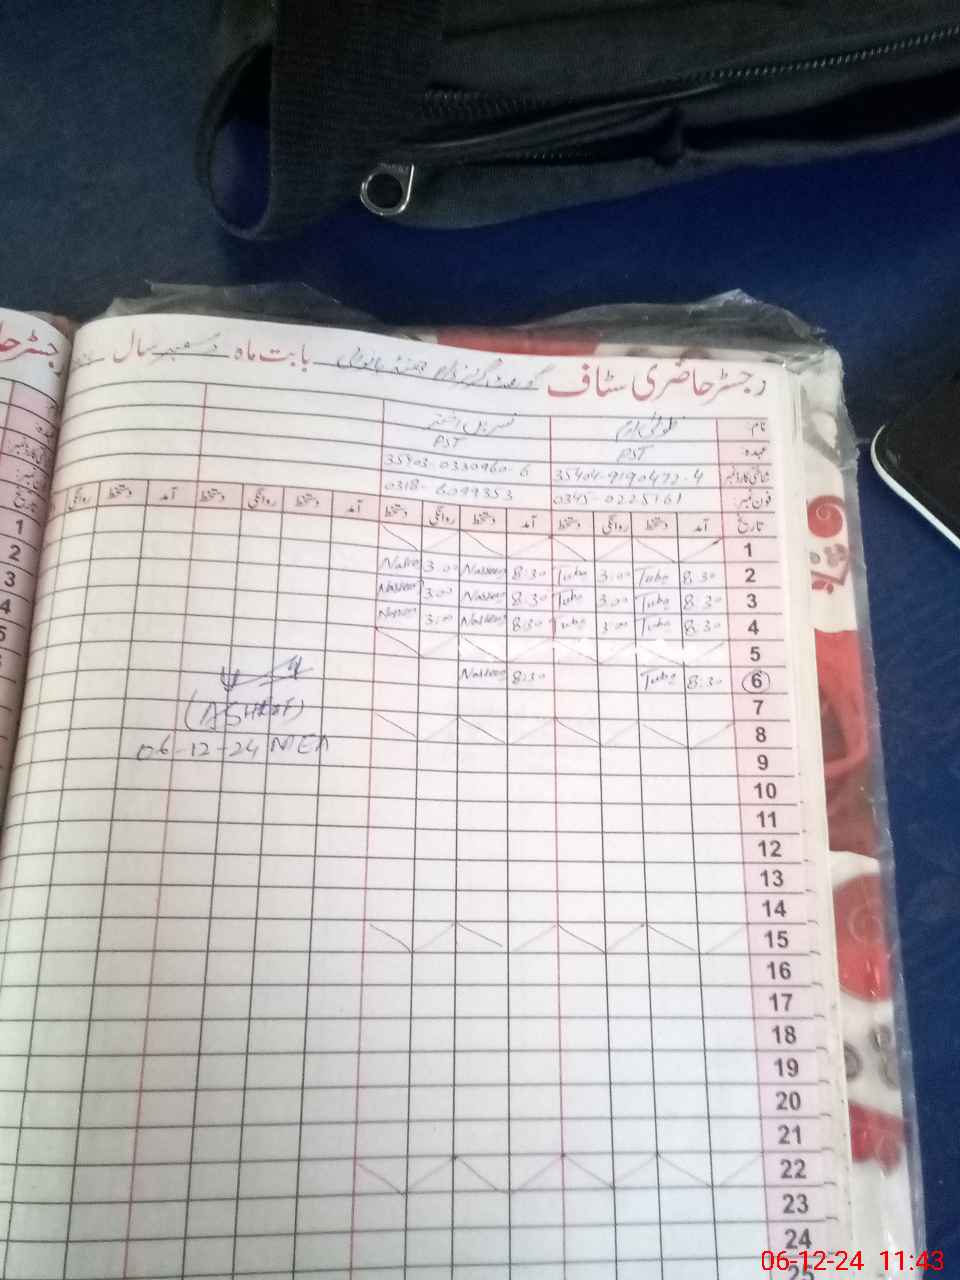 رجسٹر حاضری سٹاف گورنمنٹ گرلز بابت ماہ دسمبر سال
نام:
عہدہ: PST PST
شناختی کارڈ نمبر 35404-9190472-4 35403-0330960-6
فون نمبر: 0345-0225161 0318-6099353
تاریخ آمد دستخط روانگی دستخط آمد دستخط روانگی دستخط آمد دستخط روانگی دستخط آمد دستخط روانگی
1
2 8:30 Tuba 3:00 Tuba 8:30 Nasreen 3:00
3 8:30 Tuba 3:00 Tuba 8:30 Nasreen 3:00 Nasreen
4 8:30 Tuba 3:00 Tuba 8:30 Nasreen 3:00 Nasreen
5
6 8:30 Tuba 8:30 Nasreen
7
8
9
10
11
12
13
14
15
16
17
18
19
20
21
22
23
24
25
(ASHRAF)
06-12-24 MEA
1
2
3
4
5
06-12-24 11:43